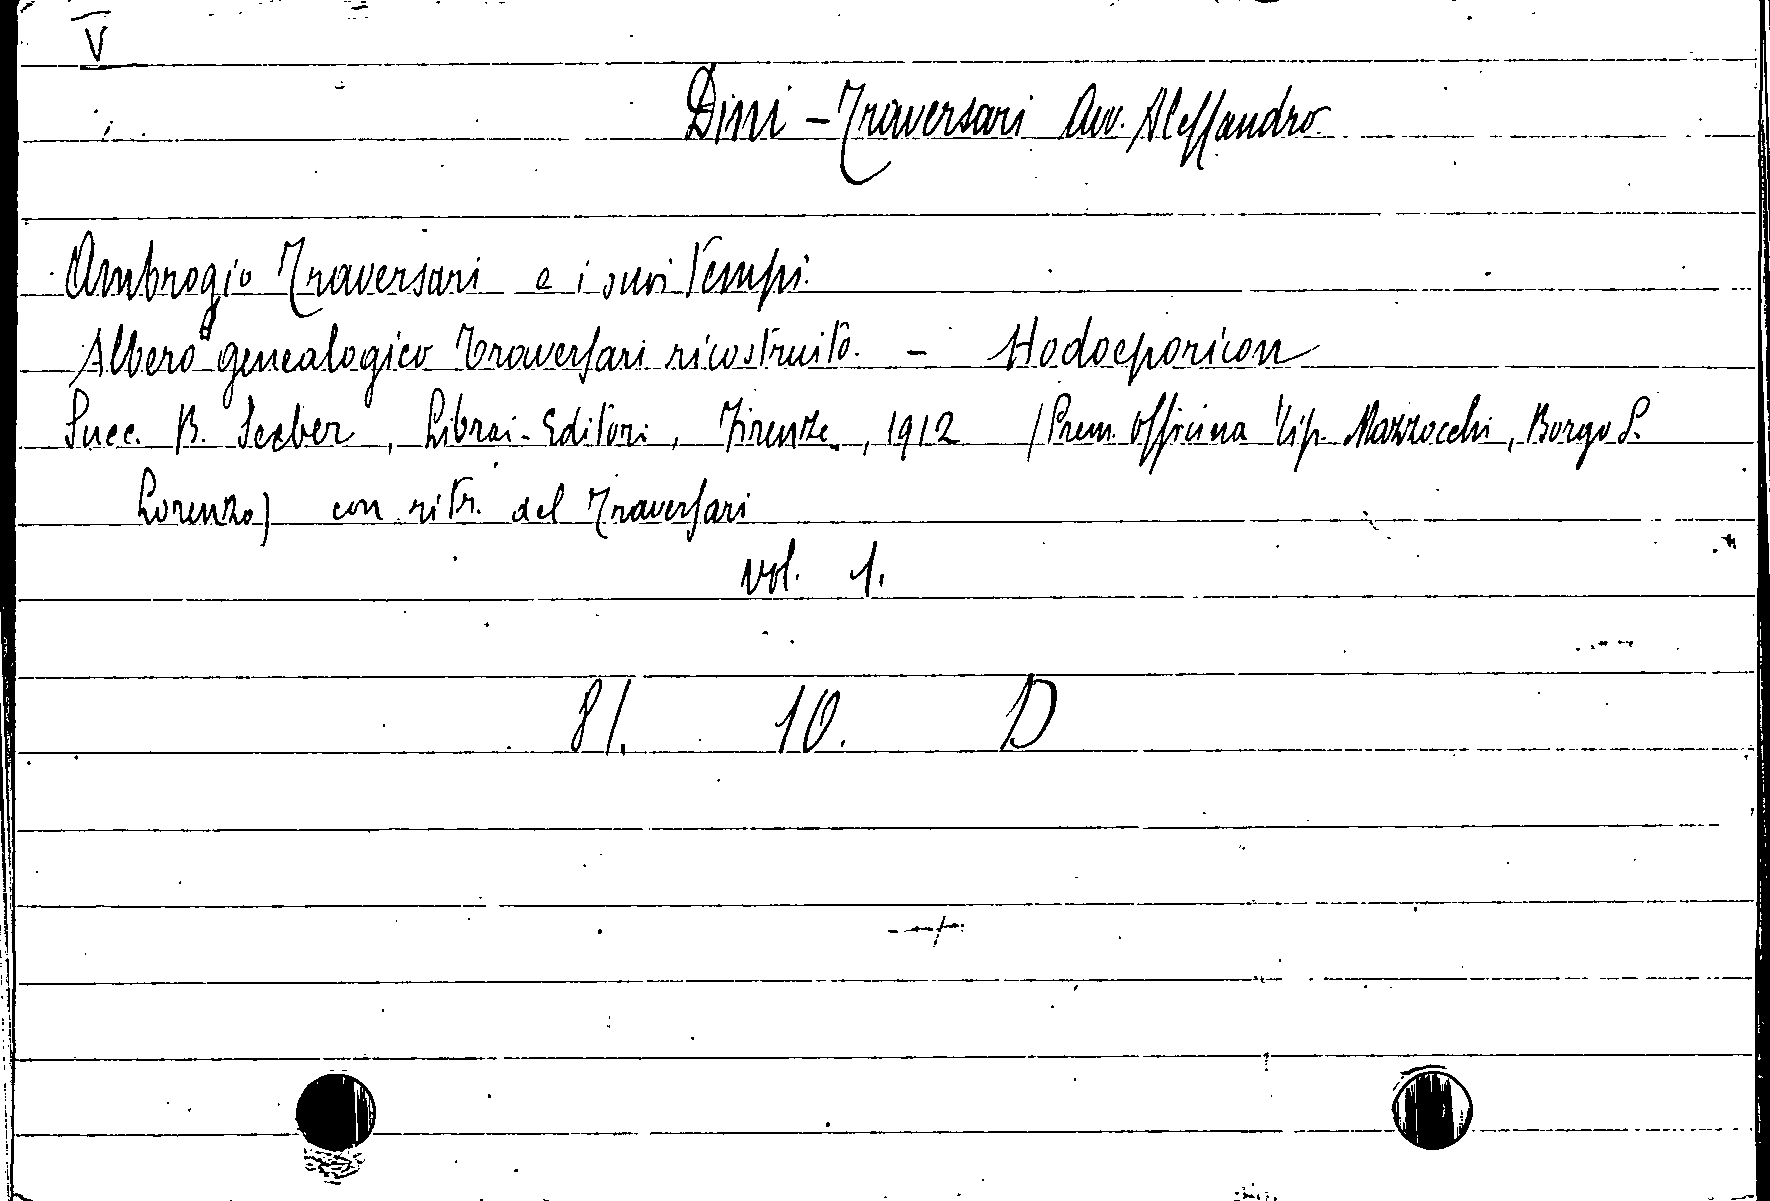 V
Dini - Traversari Avv. Alessandro.
Ambrogio Traversari e i suoi tempi.
Albero genealogico Traversari ricostruito. - Hodoeporicon
Succ. B. Seeber, Librai-Editori, Firenze, 1912 (Prem. Officina Tip. Mazzocchi, Borgo S.
Lorenzo) con ritr. del Traversari
vol. 1.
81. 10. D